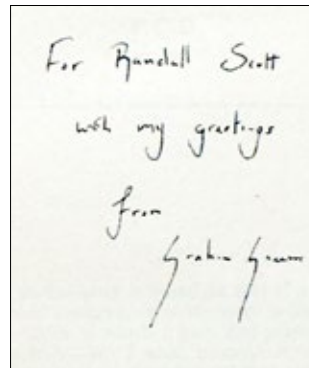 For Randall Scott
with my greetings
from
Graham Greene